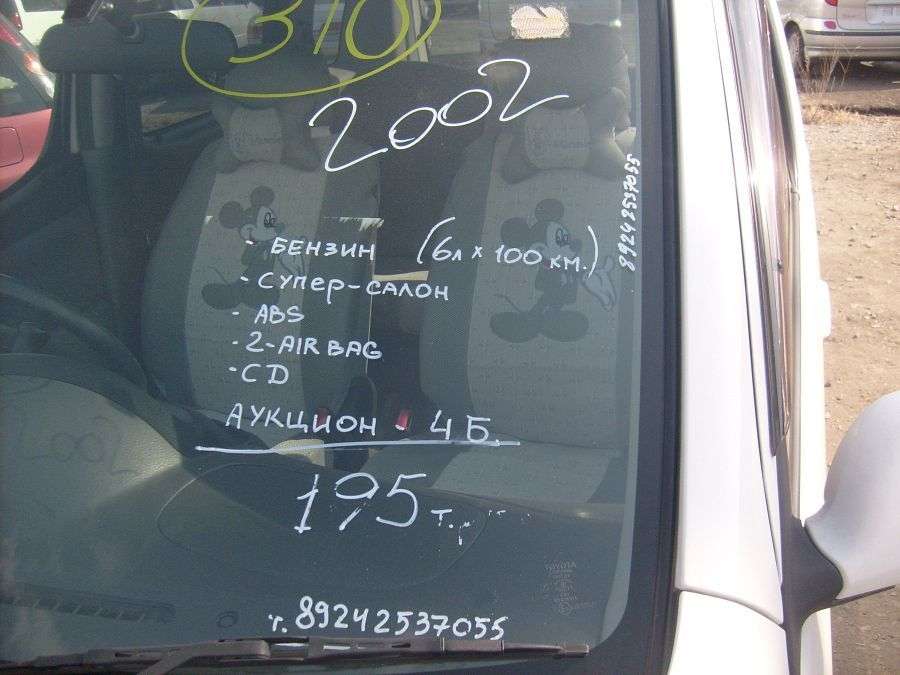 310
2002
89242537055
- БЕНЗИН (6л х 100 км.)
- СУПЕР-САЛОН
- ABS
- 2-AIR BAG
- CD
АУКЦИОН - 4 Б.
195 т.р
TOYOTA
т. 89242537055